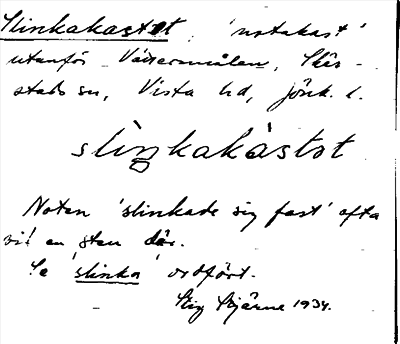 Slinkakastet 'notakast'
utanför Vättersmålen, Skär-
stads sn, Vista hd, Jönk. l.
slìŋkakàstət
Noten 'slinkade sig fast' ofta
vid en sten där.
Se 'slinka' ordfört.
Stig Stjärne 1934.